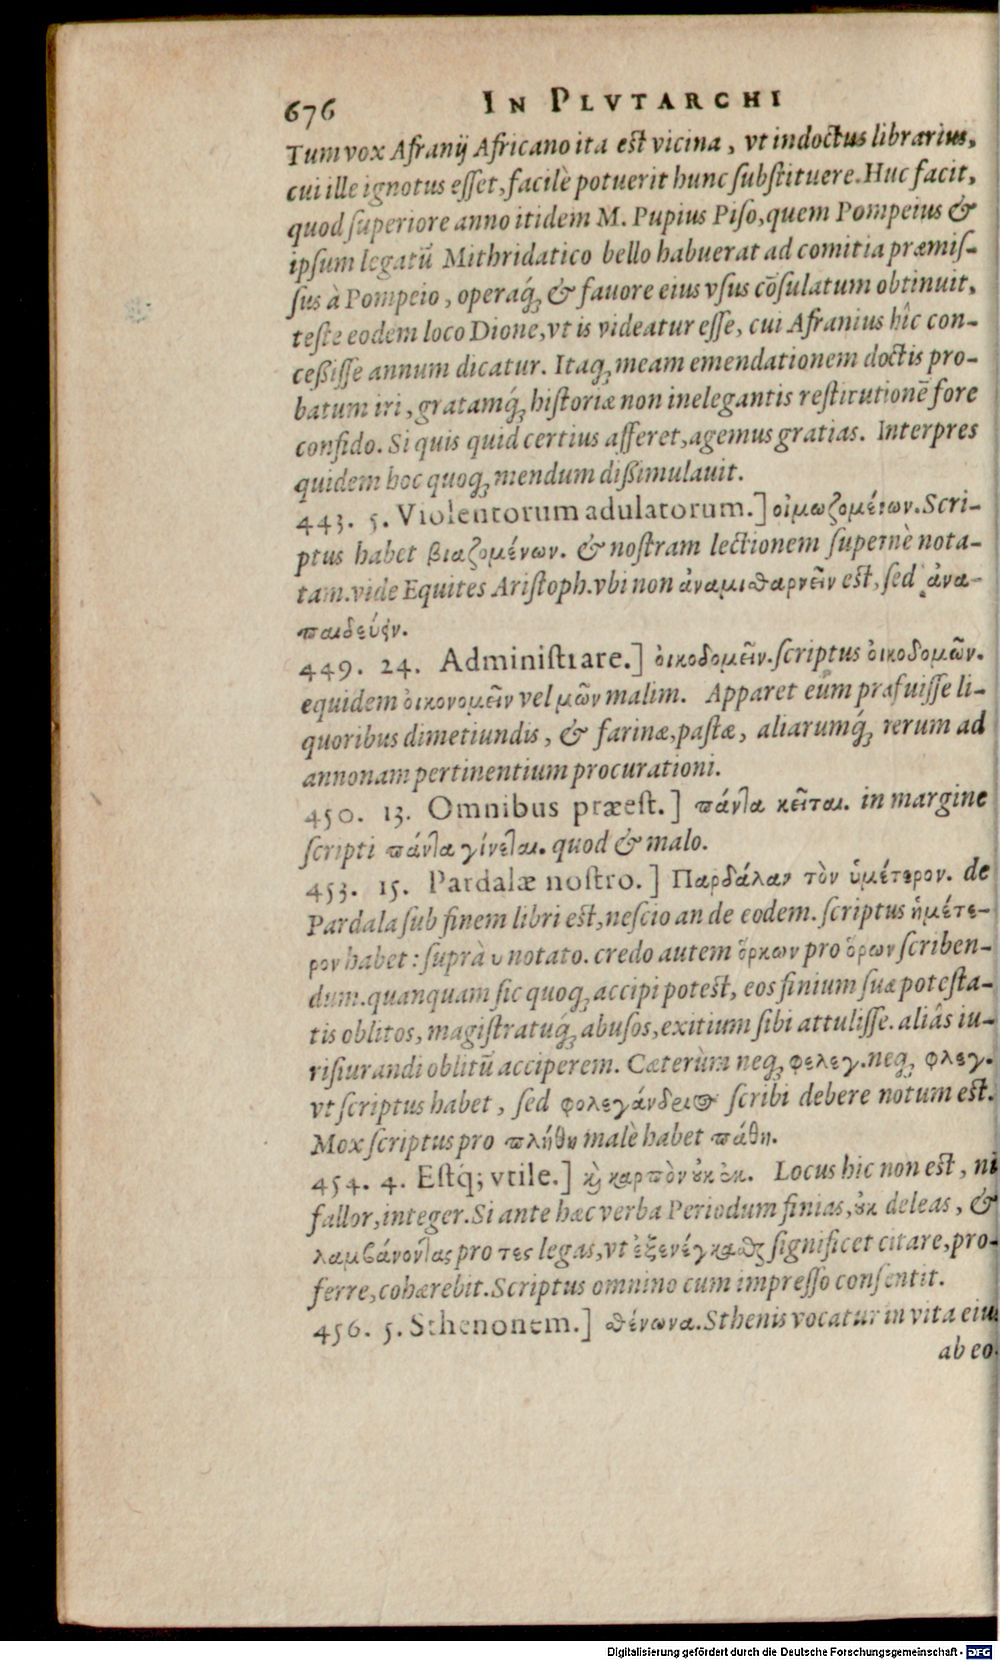 676 IN PLVTARCHI
Tum vox Afranij Africano ita est vicina, vt indoctus librarius,
cui ille ignotus esset, facilè potuerit hunc substituere. Huc facit,
quod superiore anno itidem M. Pupius Piso, quem Pompeius &
ipsum legatū Mithridatico bello habuerat ad comitia præmis-
sus à Pompeio, operaq́; & fauore eius vsus cōsulatum obtinuit,
teste eodem loco Dione, vt is videatur esse, cui Afranius hîc con-
ceßisse annum dicatur. Itaq; meam emendationem doctis pro-
batum iri, gratamq́; historiæ non inelegantis restitutionē fore
confido. Si quis quid certius afferet, agemus gratias. Interpres
quidem hoc quoq; mendum dißimulauit.
443. 5. Violentorum adulatorum.] οἰμωζομένων. Scri-
ptus habet βιαζομένων. & nostram lectionem supernè nota-
tam. vide Equites Aristoph. vbi non ἀναμισθαρνεῖν est, sed ἀνα-
παιδεύειν.
449. 24. Administrare.] οἰκοδομεῖν. scriptus οἰκοδομῶν.
equidem οἰκονομεῖν vel μῶν malim. Apparet eūm præfuisse li-
quoribus dimetiundis, & farinæ, pastæ, aliarumq́; rerum ad
annonam pertinentium procurationi.
450. 13. Omnibus præest.] πάντα κεῖται. in margine
scripti πάντα γίνεται. quod & malo.
453. 15. Pardalæ nostro.] Παρδάλαν τὸν ὑμέτερον. de
Pardala sub finem libri est, nescio an de eodem. scriptus ἡμέτε-
ρον habet: suprà υ notato. credo autem ὅρκων pro ὅρων scriben-
dum. quanquam sic quoq; accipi potest, eos finium suæ potesta-
tis oblitos, magistratuq; abusos, exitium sibi attulisse. aliâs iu-
risiurandi oblitū acciperem. Cæterùm neq; φελεγ. neq; φλεγ.
vt scriptus habet, sed φολεγάνδριος scribi debere notum est.
Mox scriptus pro πλήθη malè habet πάθη.
454. 4. Estq́; vtile.] καὶ καρπὸν οὐκ ἐκ. Locus hic non est, ni
fallor, integer. Si ante hæc verba Periodum finias, οὐκ deleas, &
λαμβάνοντας pro τες legas, vt ἐξενέγκασθαι significet citare, pro-
ferre, cohærebit. Scriptus omnino cum impresso consentit.
456. 5. Sthenonem.] σθένωνα. Sthenis vocatur in vita eius
ab eo-
Digitalisierung gefördert durch die Deutsche Forschungsgemeinschaft - DFG